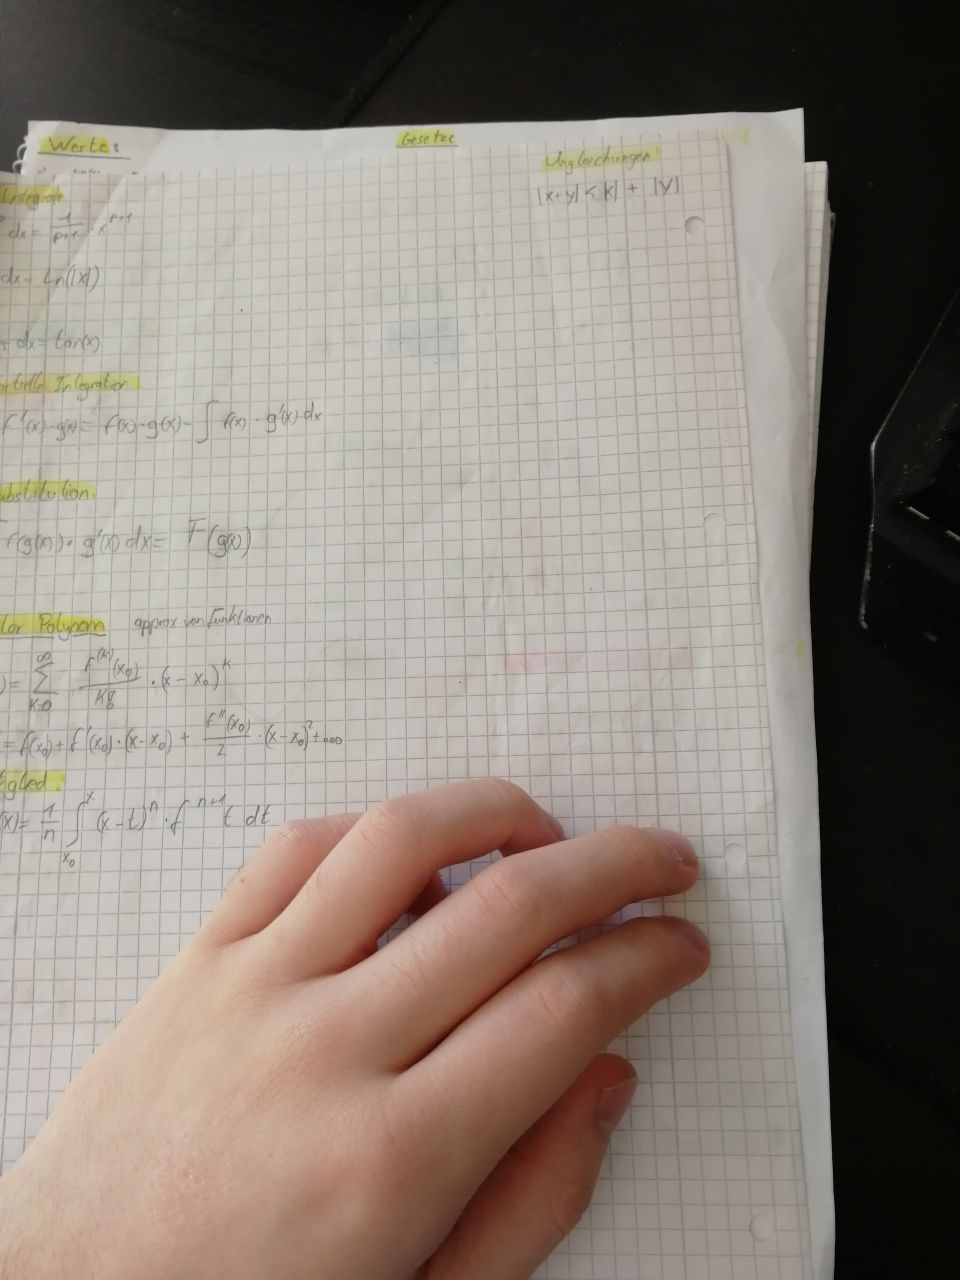 Werte:
Gesetze
Ungleichungen:
|x+y| < |x| + |y|
Integrale
dx = 1/(p+1) · x^(p+1)
dx = Ln(|x|)
dx = tan(x)
rtielle Integration
f'(x)·g(x) = f(x)·g(x) - ∫ f(x) · g'(x) dx
ubstitution
f(g(x)) · g'(x) dx = F(g(x))
lor Polynom approx von Funktionen
) = ∑_(k=0)^∞ f^(k)(x₀)/k! · (x - x₀)^k
= f(x₀) + f'(x₀) · (x-x₀) + f''(x₀)/2 · (x-x₀)² + ...
glied:
(x) = 1/n ∫_(x₀)^x (x-t)^n · f^(n+1) t dt